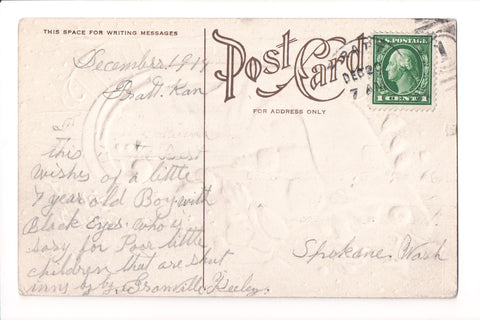 THIS SPACE FOR WRITING MESSAGES
Post Card
FOR ADDRESS ONLY
U.S. POSTAGE
1 CENT 1
DEC 20
7 A
December 1919
Pratt. Kan
this the best
wishes of a little
7 year old Boy with
Black Eyes. who is
sory for Poor little
children that are shut
inns by by. Granville Keeley.
Spokane. Wash